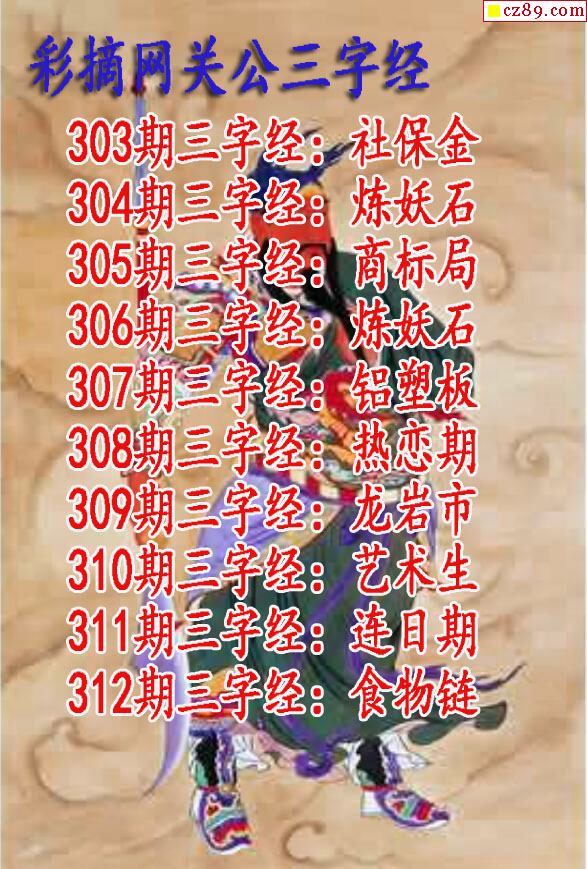 cz89.com
彩摘网关公三字经
303期三字经：社保金
304期三字经：炼妖石
305期三字经：商标局
306期三字经：炼妖石
307期三字经：铝塑板
308期三字经：热恋期
309期三字经：龙岩市
310期三字经：艺术生
311期三字经：连日期
312期三字经：食物链